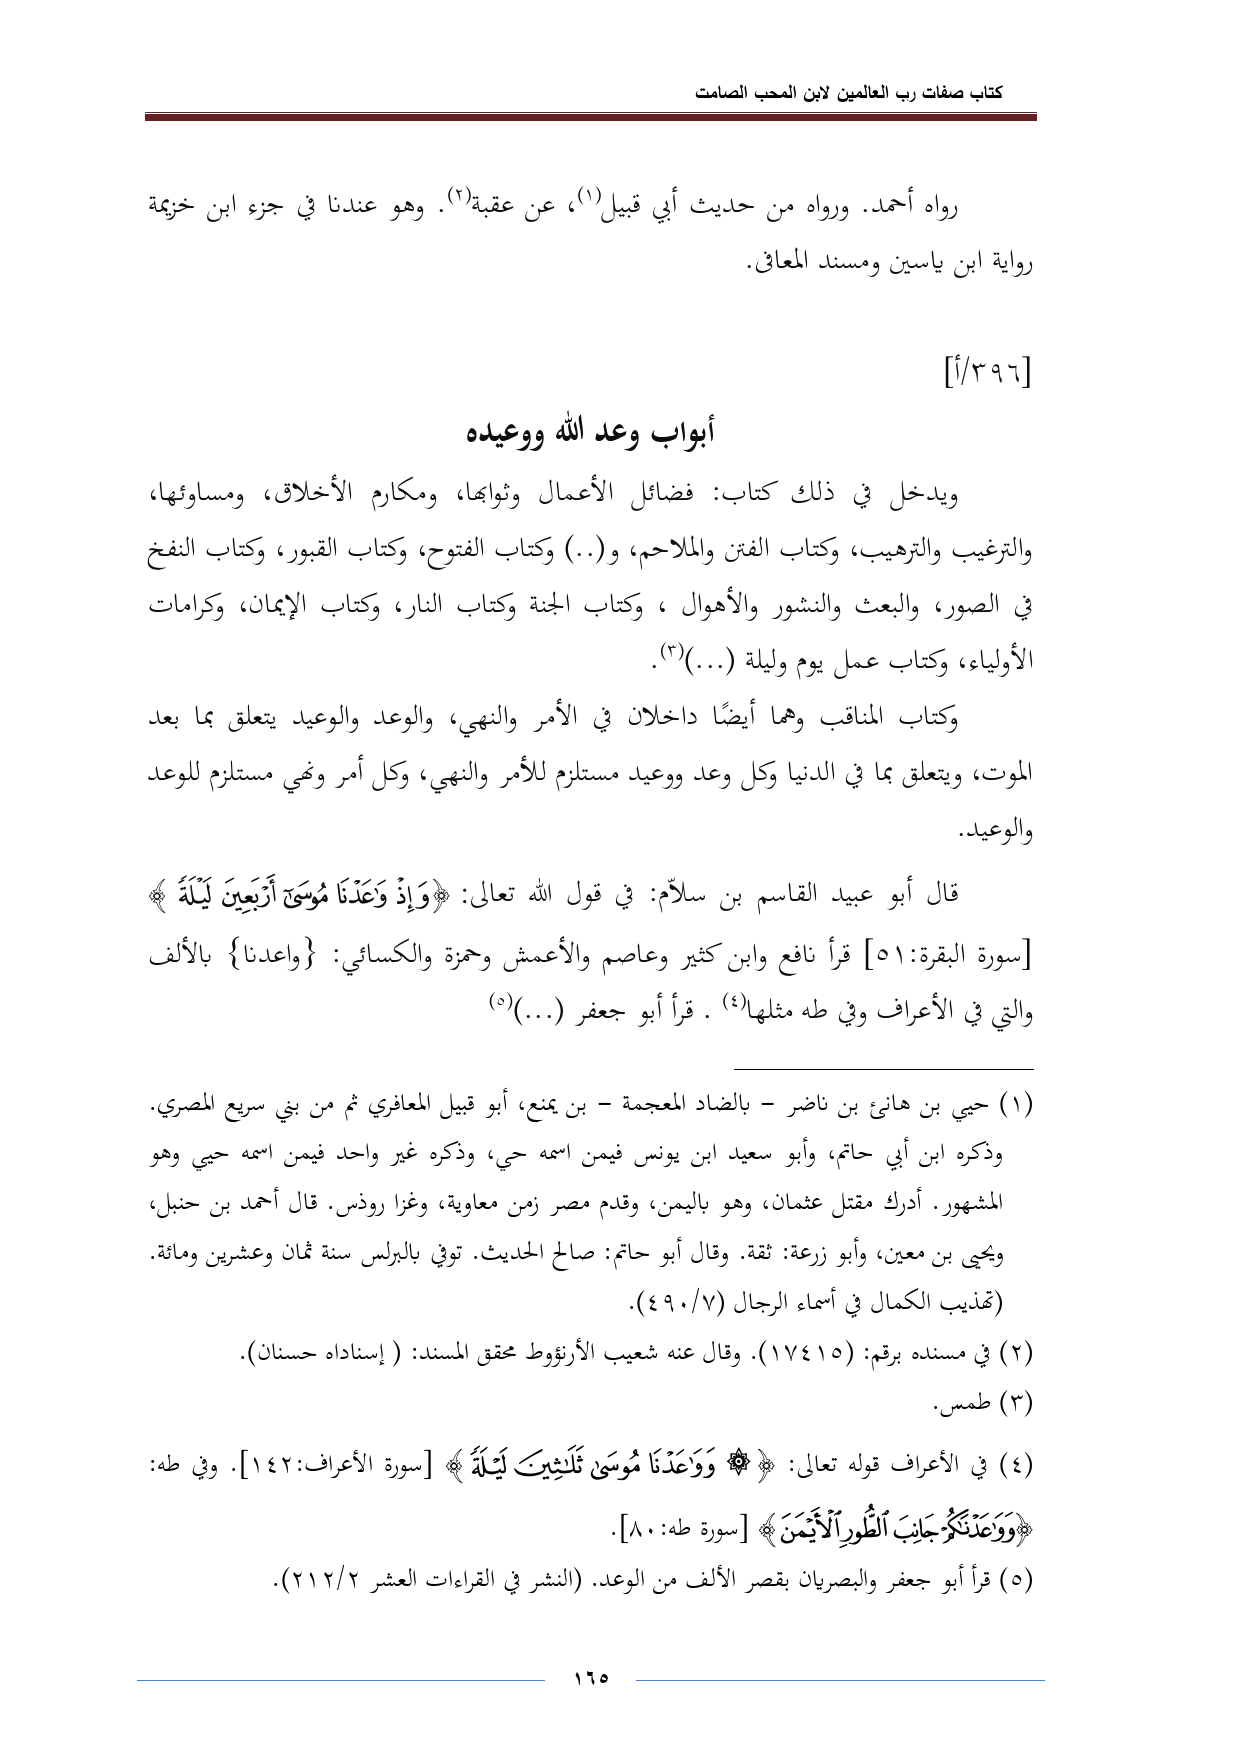 كتاب صفات رب العالمين لابن المحب الصامت
رواه أحمد. ورواه من حديث أبي قبيل(١)، عن عقبة(٢). وهو عندنا في جزء ابن خزيمة
رواية ابن ياسين ومسند المعافى.
[٣٩٦/أ]
أبواب وعد الله ووعيده
ويدخل في ذلك كتاب: فضائل الأعمال وثوابها، ومكارم الأخلاق، ومساوئها،
والترغيب والترهيب، وكتاب الفتن والملاحم، و(..) وكتاب الفتوح، وكتاب القبور، وكتاب النفخ
في الصور، والبعث والنشور والأهوال ، وكتاب الجنة وكتاب النار، وكتاب الإيمان، وكرامات
الأولياء، وكتاب عمل يوم وليلة (...)(٣).
وكتاب المناقب وهما أيضًا داخلان في الأمر والنهي، والوعد والوعيد يتعلق بما بعد
الموت، ويتعلق بما في الدنيا وكل وعد ووعيد مستلزم للأمر والنهي، وكل أمر ونهي مستلزم للوعد
والوعيد.
قال أبو عبيد القاسم بن سلاّم: في قول الله تعالى: ﴿وَإِذْ وَٰعَدْنَا مُوسَىٰٓ أَرْبَعِينَ لَيْلَةً ﴾
[سورة البقرة:٥١] قرأ نافع وابن كثير وعاصم والأعمش وحمزة والكسائي: {واعدنا} بالألف
والتي في الأعراف وفي طه مثلها(٤) . قرأ أبو جعفر (...)(٥)
(١) حيي بن هانئ بن ناضر – بالضاد المعجمة – بن يمنع، أبو قبيل المعافري ثم من بني سريع المصري.
وذكره ابن أبي حاتم، وأبو سعيد ابن يونس فيمن اسمه حي، وذكره غير واحد فيمن اسمه حيي وهو
المشهور. أدرك مقتل عثمان، وهو باليمن، وقدم مصر زمن معاوية، وغزا روذس. قال أحمد بن حنبل،
ويحيى بن معين، وأبو زرعة: ثقة. وقال أبو حاتم: صالح الحديث. توفي بالبرلس سنة ثمان وعشرين ومائة.
(تهذيب الكمال في أسماء الرجال (٤٩٠/٧).
(٢) في مسنده برقم: (١٧٤١٥). وقال عنه شعيب الأرنؤوط محقق المسند: ( إسناداه حسنان).
(٣) طمس.
(٤) في الأعراف قوله تعالى: ﴿ ۞ وَوَٰعَدْنَا مُوسَىٰ ثَلَٰثِينَ لَيْلَةً ﴾ [سورة الأعراف:١٤٢]. وفي طه:
﴿وَوَٰعَدْنَٰكُمْ جَانِبَ ٱلطُّورِ ٱلْأَيْمَنَ﴾ [سورة طه:٨٠].
(٥) قرأ أبو جعفر والبصريان بقصر الألف من الوعد. (النشر في القراءات العشر ٢١٢/٢).
١٦٥